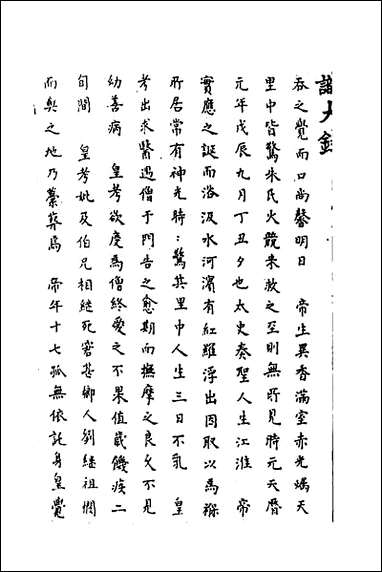 吞之覺而口尚馨明日　帝生異香滿室赤光燭天
里中皆驚朱氏火競來救之至則無所見時元天曆
元年戊辰九月丁丑夕也太史奏聖人生江淮　帝
實應之誕而浴汲水河濱有紅羅浮出因取以爲褓
所居常有神光時:驚其里中人生三日不乳　皇
考出求醫遇僧于門告之愈期而撫摩之良乆不見
幼善病　皇考欲度爲僧終愛之不果值歲饑疾二
旬間　皇考妣及伯兄相繼死窘甚鄉人劉繼祖惘
而與之地乃藁葬焉　帝年十七孤無依託身皇覺